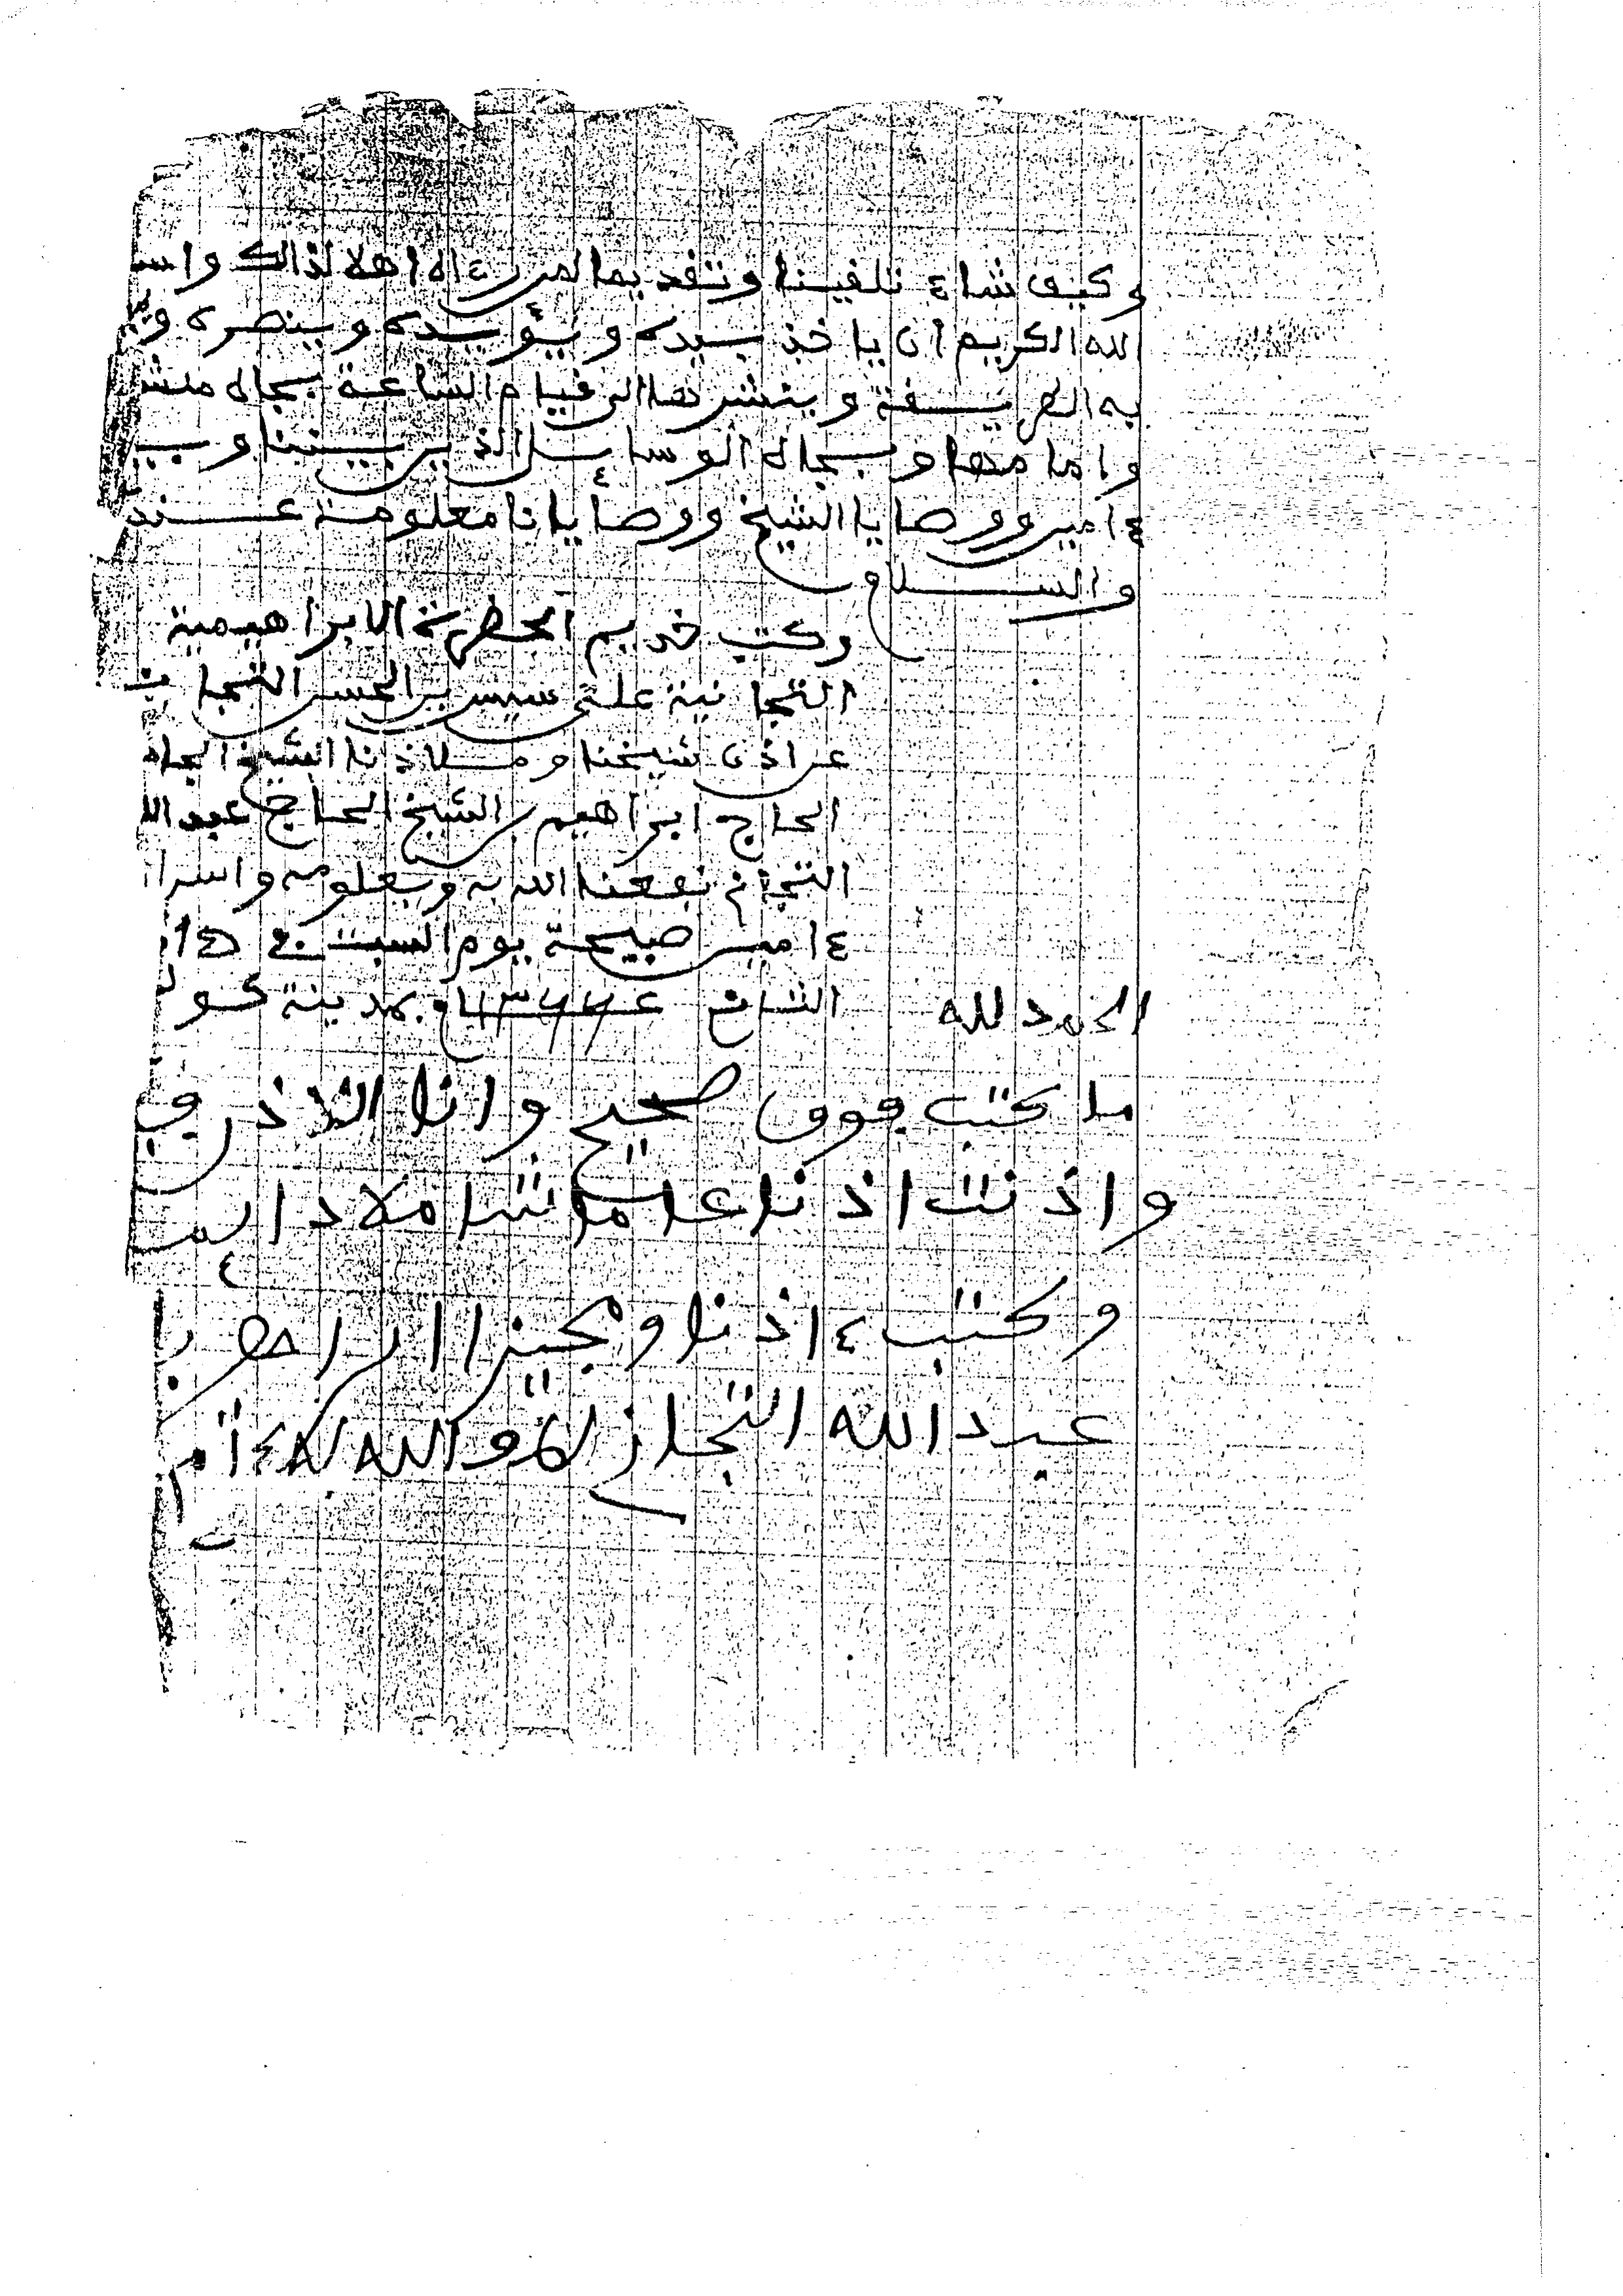 وكيف شاء تلقينا وتقديما لمن رءاه اهلا لذالك واسـ
الله الكريم ان ياخذ بيده ويؤيده وينصره
به الطريقة وينشرها الى قيام الساعة بجاه منشـ
وامامها وبجاه الوسائل الذين بيننا وبيـ
ءامين ووصايا الشيخ ووصايانا معلومة عنـد
والسلام
وكتب خديم الحضرة الابراهيمية
التجانية علي سيس بن الحسن التجانـ
عن اذن شيخنا وملاذنا الشيخ الحاج
الحاج ابراهيم بن الشيخ الحاج عبد اللـ
التجاني نفعنا الله به وبعلومه واسرا
ءامين صبيحة يوم السبت
الثاني بمدينة كولـ
الحمد لله
ما كتب فوق صحيح وانا الاذن في
واذنت اذنا عاما شاملا دائما
وكتب ءاذنا ومجيزا ابراهيم بـ
عبد الله التجاني